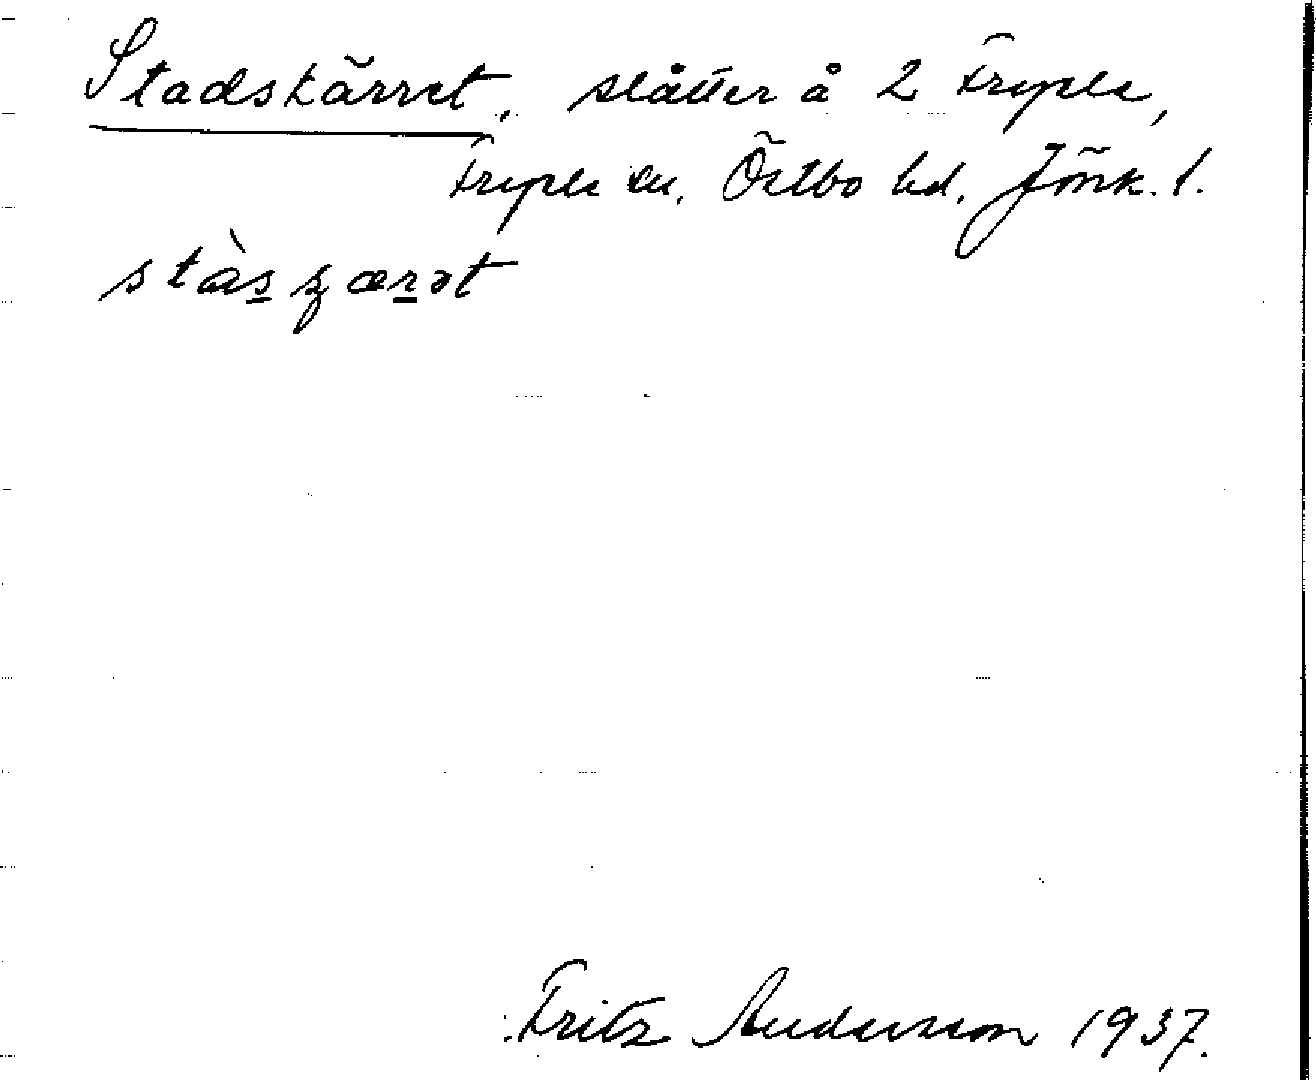 Stadskärret, slåtter å 2 Fryele,
Fryele sn, Östbo hd, Jönk. l.
stàs̲ȿær̲ət
Fritz Andersson 1937.